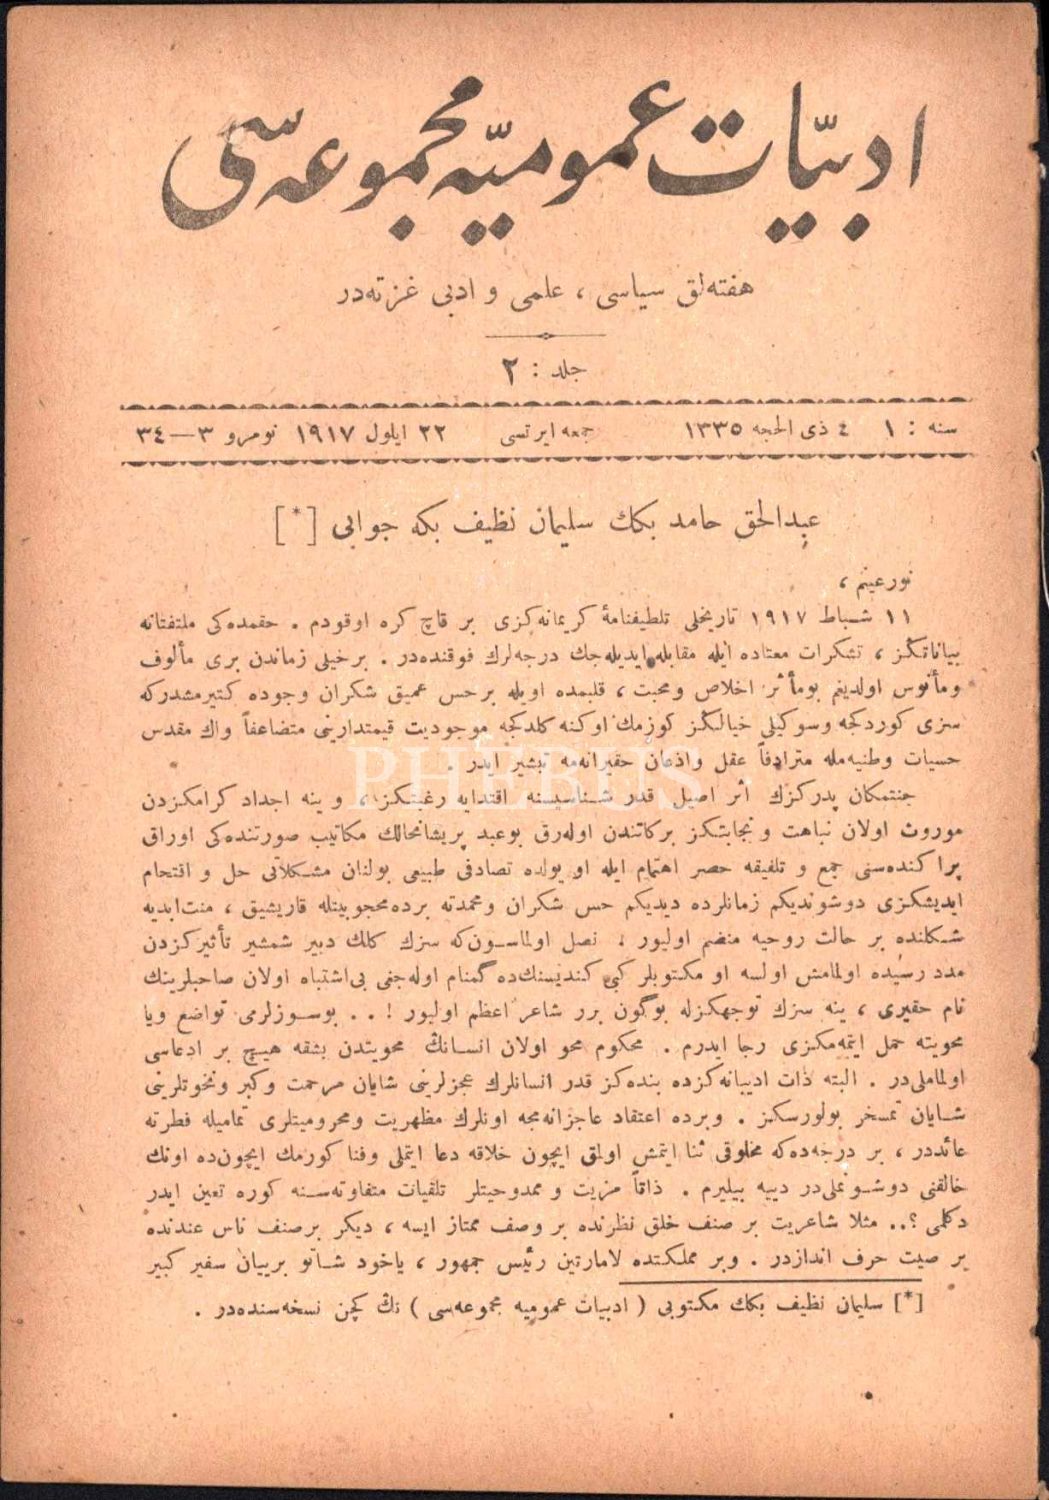 ادبيّات عموميّه مجموعه‌سى
هفته‌لق سياسى ، علمى و ادبى غزته‌در
جلد : ٢
سنه : ١ ٤ ذى الحجه ١٣٣٥ جمعه ايرتسى ٢٢ ايلول ١٩١٧ نومرو ٣—٣٤
عبدالحق حامد بكك سليمان نظيف بكه جوابى [*]
نورعينم ،
١١ شباط ١٩١٧ تاريخلى تلطيفنامۀ كريمانه‌كزى بر قاچ كره اوقودم . حقمده‌كى ملتفتانه
بياناتڭز ، تشكرات معتاده ايله مقابله ايديله‌جك درجه‌لرك فوقنده‌در . برخيلى زماندن برى مألوف
ومأنوس اولديغم بومأثر اخلاص ومحبت ، قلبمده اويله برحس عميق شكران وجوده كتيرمشدركه
سزى كوردكجه وسوكيلى خيالڭز كوزمك اوكنه كلدكجه موجوديت قيمتدارينى متضاعفاً واك مقدس
حسيات وطنيه‌مله مترادفاً عقل واذعان حقيرانه‌مه تبشير ايدر .
PHEBUS
جنتمكان پدركزك اثر اصيل قدر شناسيسنه اقتدايه رغبتكز ، و ينه اجداد كرامكزدن
موروث اولان نباهت و نجابتكز بركاتندن اوله‌رق بوعبد پريشانحالك مكاتيب صورتنده‌كى اوراق
پراكنده‌سنى جمع و تلفيقه حصر اهتمام ايله او يولده تصادفى طبيعى بولنان مشكلاتى حل و اقتحام
ايديشكزى دوشونديكم زمانلرده ديديكم حس شكران ومحمدته برده‌محجوبيتله قاريشيق ، منت‌ابديه
شكلنده بر حالت روحيه منضم اوليور . نصل اولماسون‌كه سزك كلك دبير شمشير تأثيركزدن
مدد رسيده اولمامش اولسه او مكتوبلر كبى كنديسنك‌ده گمنام اوله‌جغى بى‌اشتباه اولان صاحبلرينك
نام حقيرى ، ينه سزك توجهكزله بوگون برر شاعر اعظم اوليور ! . . بوسوزلرمى تواضع ويا
محويته حمل ايتمه‌مكزى رجا ايدرم . محكوم محو اولان انسانك محويتدن بشقه هيچ بر ادعاسى
اولماملى‌در . البته ذات اديبانه‌كزده بنده‌كز قدر انسانلرك عجزلرينى شايان مرحمت وكبر ونخوتلرينى
شايان تمسخر بولورسكز . وبرده اعتقاد عاجزانه‌مجه اونلرك مظهريت ومحروميتلرى تماميله فطرته
عائددر ، بر درجه‌ده‌كه مخلوقى ثنا ايتمش اولمق ايچون خلاقه دعا ايتملى وفنا كورمك ايچون‌ده اونك
خالقنى دوشونملى‌در دييه بيليرم . ذاتاً مزيت و ممدوحيتلر تلقيات متفاوته‌سنه كوره تعين ايدر
دكلمى ؟.. مثلا شاعريت بر صنف خلق نظرنده بر وصف ممتاز ايسه ، ديكر برصنف ناس عندنده
بر صيت حرف اندازدر . وبر مملكتده لامارتين رئيس جمهور ، ياخود شاتو بريان سفير كبير
[*] سليمان نظيف بكك مكتوبى ( ادبيات عموميه مجموعه‌سى ) نك كچن نسخه‌سنده‌در .